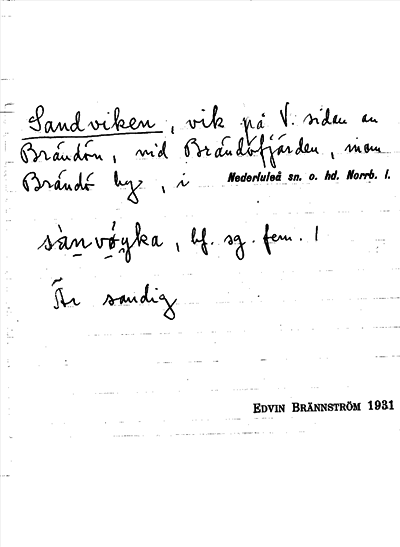 Sandviken, vik på V. sidan av
Brändön, vid Brändöfjärden, inom
Brändö by, i Nederluleå sn. o. hd. Norrb. l.
sànvø̀yka, bf. sg. fem. l
Är sandig
EDVIN BRÄNNSTRÖM 1931